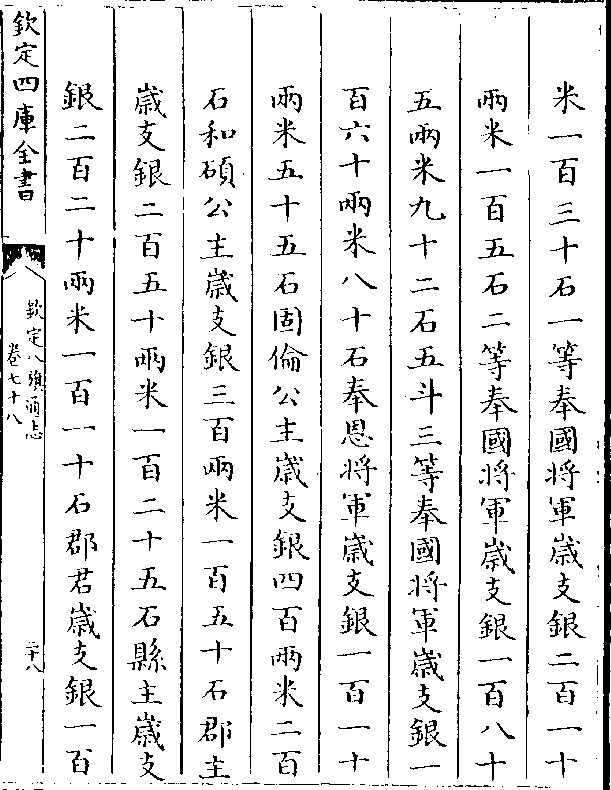 米一百三十石一等奉國將軍歳支銀二百一十
兩米一百五石二等奉國將軍歳支銀一百八十
五兩米九十二石五斗三等奉國將軍歳支銀一
百六十兩米八十石奉恩将軍歳支銀一百一十
兩米五十五石固倫公主歳支銀四百兩米二百
石和碩公主歳支銀三百兩米一百五十石郡主
歳支銀二百五十兩米一百二十五石縣主歳支
銀二百二十兩米一百一十石郡君歳支銀一百
欽定四庫全書
欽定八旗通志
卷七十八
二十八